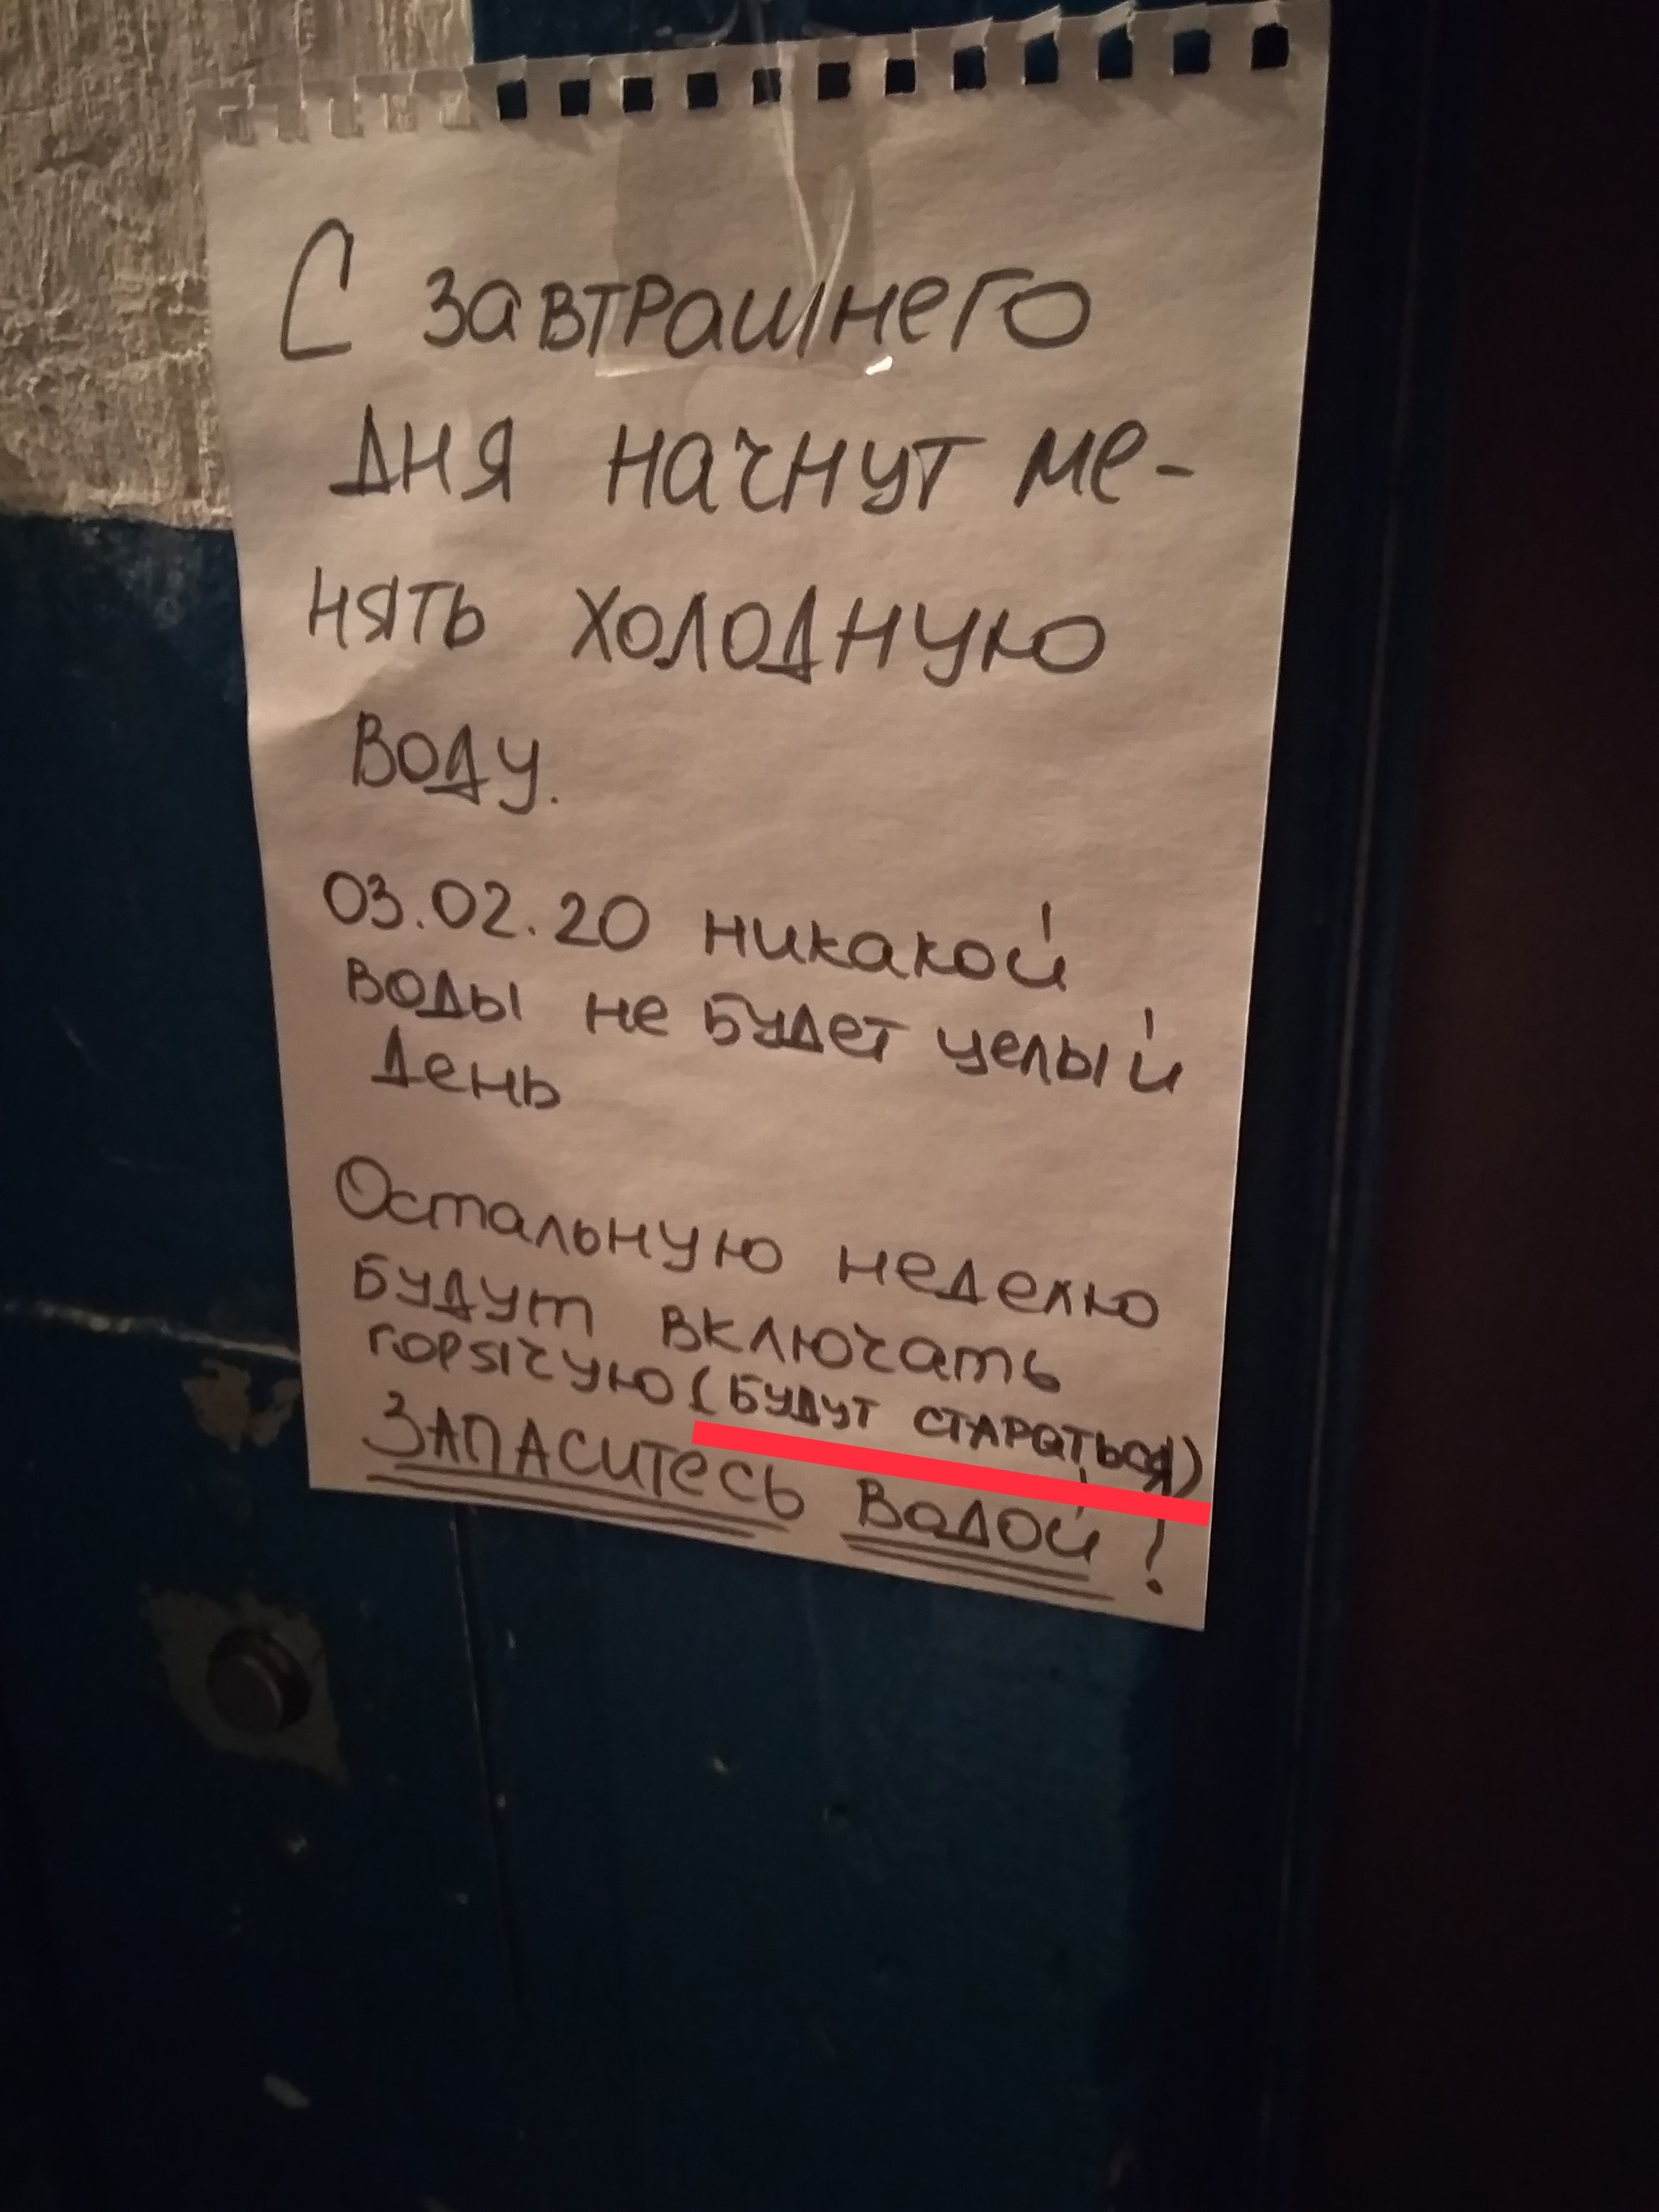 С завтрашнего
дня начнут ме-
нять холодную
воду.
03.02.20 никакой
воды не будет целый
день
Остальную неделю
будут включать
горячую (будут стараться)
ЗАПАСИТЕСЬ ВОДОЙ!